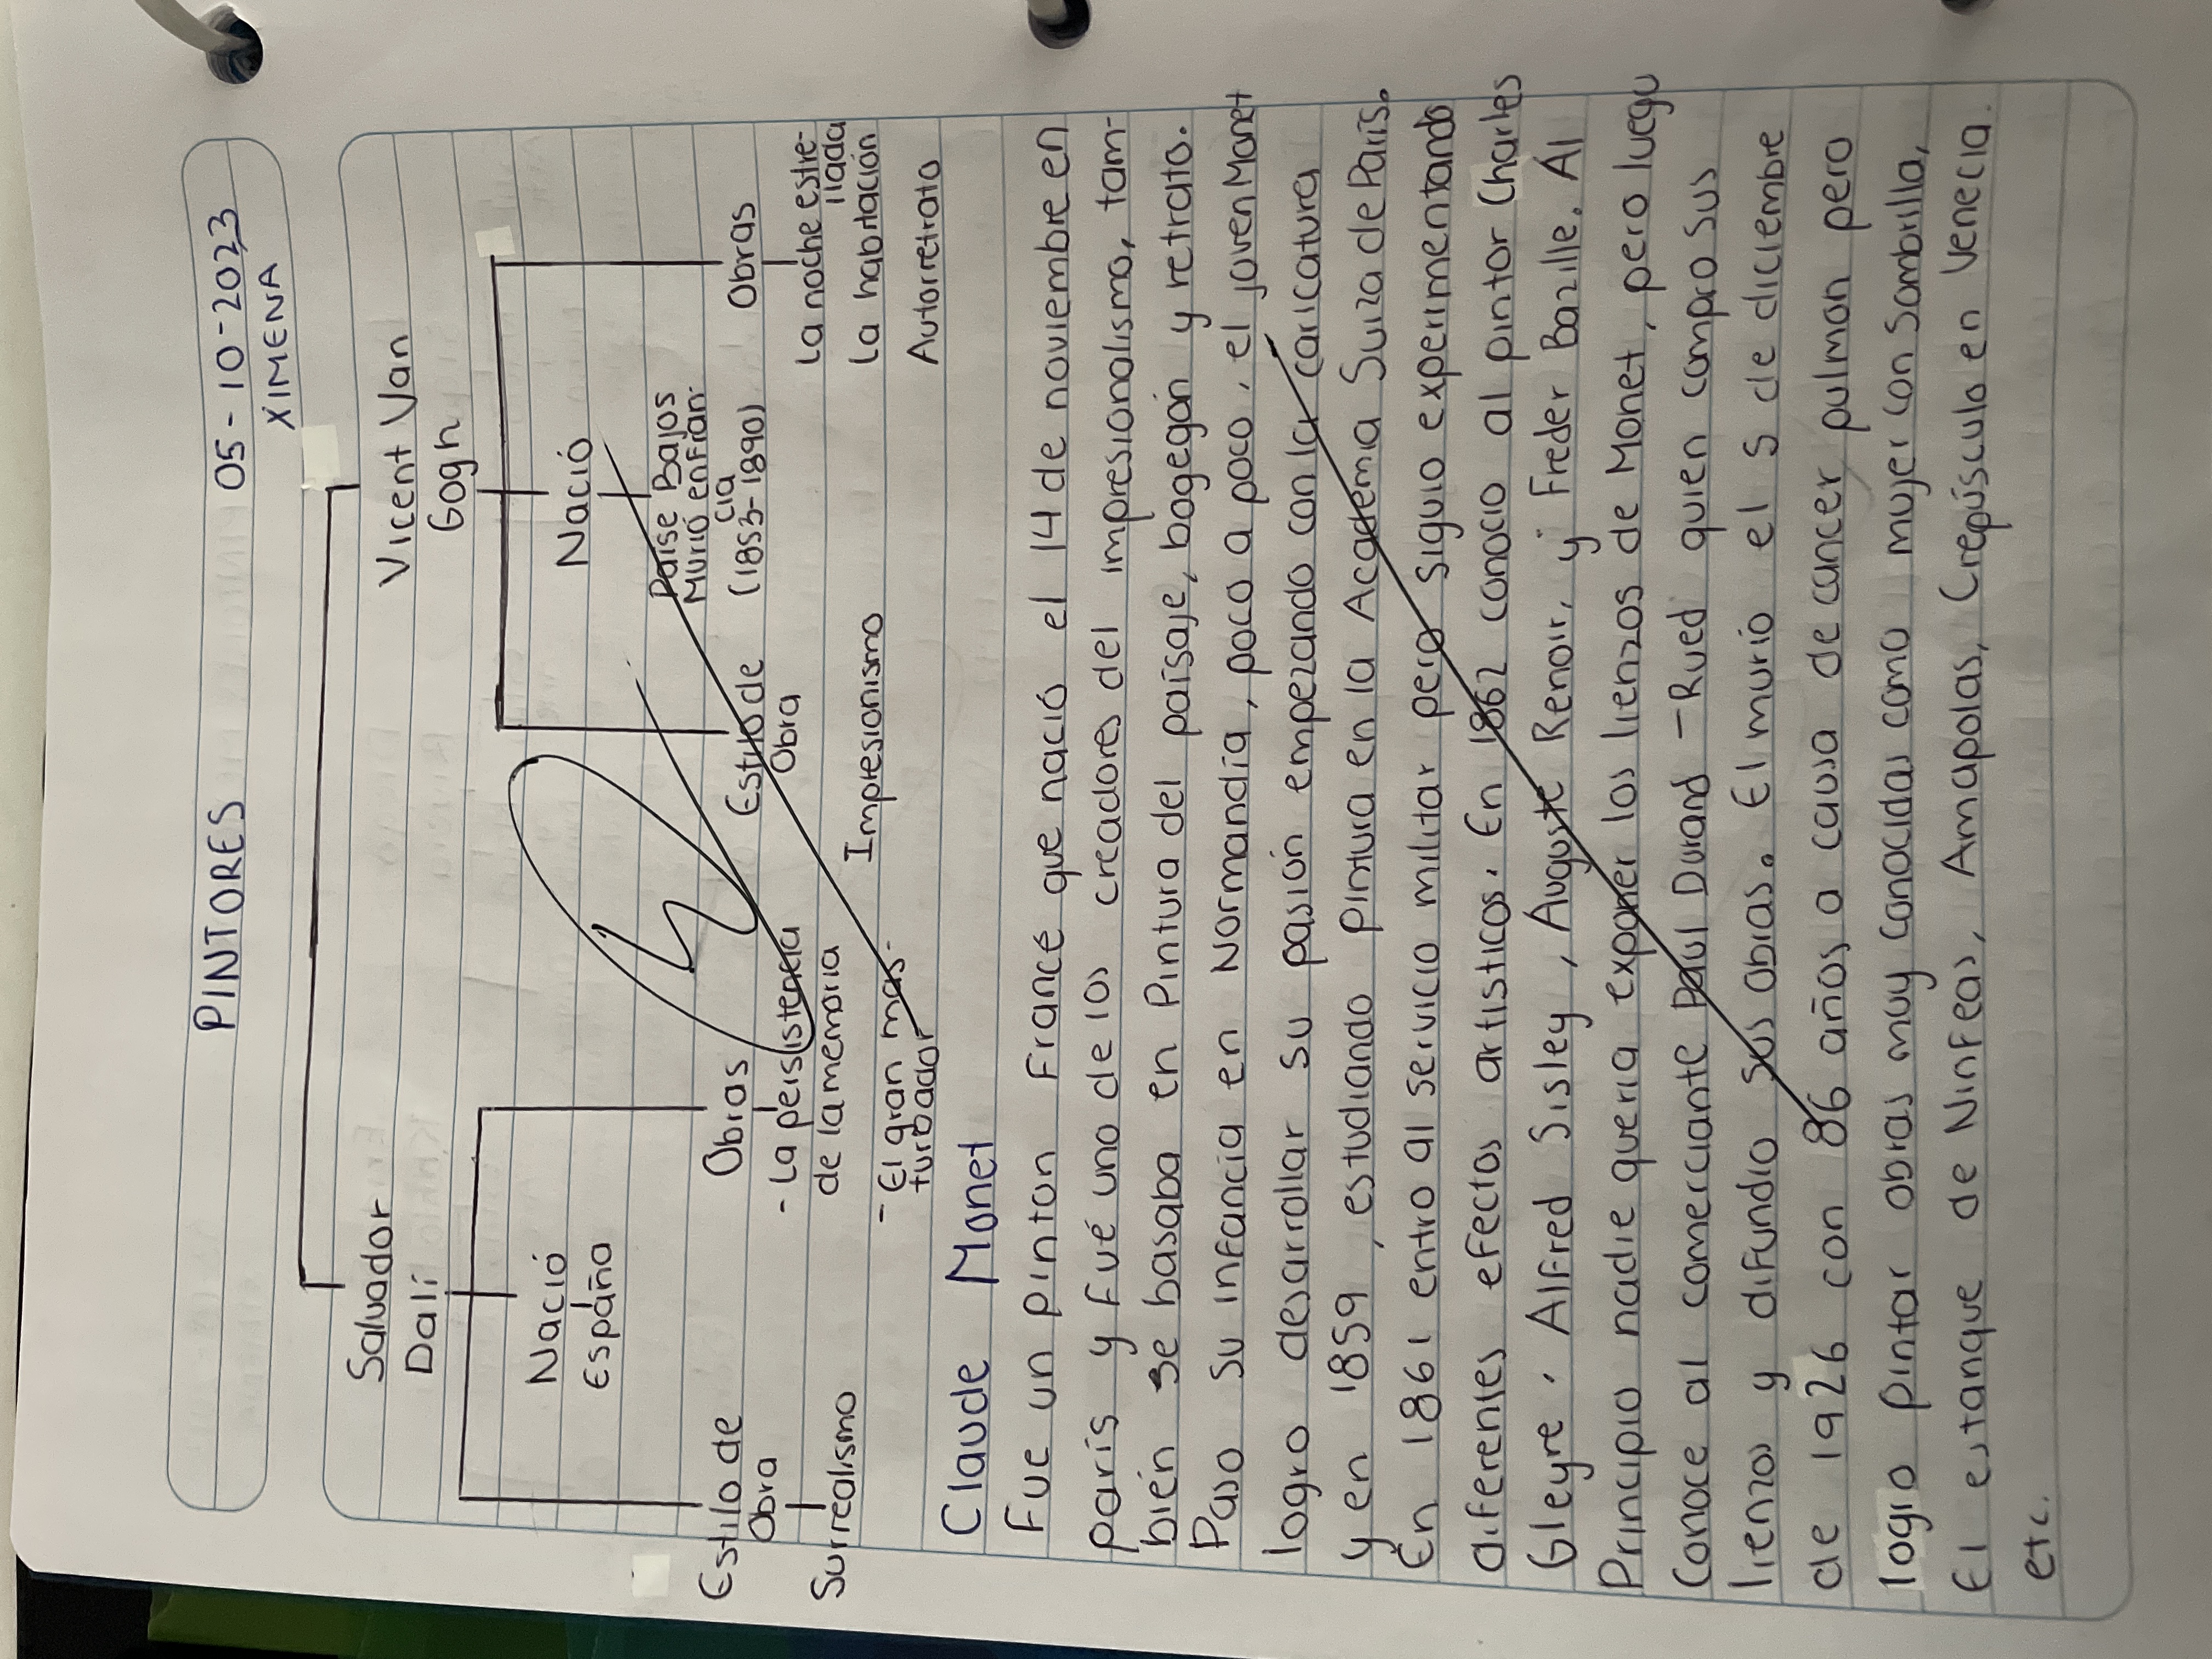 PINTORES 05-10-2023
XIMENA
Salvador
Dalí
Nació
España
Estilo de
Obra
Surrealismo
Obras
- La persistencia
de la memoria
- El gran mas-
turbador
Vicent Van
Gogh
Nació
Paise Bajos
Murió en Fran-
cia
(1853-1890)
Estilo de
Obra
Impresionismo
Obras
La noche estre-
llada
La habitación
Autorretrato
Claude Monet
Fue un pinton Francé que nació el 14 de noviembre en
parís y Fué uno de los creadores del impresionalismo, tam-
bién se basaba en Pintura del paísaje, bogegón y retrato.
Paso su infancia en Normandía, poco a poco, el joven Monet
logro desarrollar su pasión empezando con la caricatura
y en 1859, estudiando pintura en la Academa Suiza de París.
En 1861 entro al servicio militar pero siguio experimentando
diferentes efectos artisticos. En 1862 conocio al pintor Charles
Gleyre, Alfred Sisley, Auguste Renoir, y Freder Bazille. Al
Principio nadie queria exponer los lienzos de Monet, pero luego
Conoce al comerciante Paul Durand -Rued quien compro sus
lienzos y difundio sus obras. El murio el 5 de diciembre
de 1926 con 86 años a causa de cancer pulmon pero
logro pintar obras muy conocidas como mujer con Sombrilla,
El estanque de Ninfeas, Amapolas, Crepúsculo en Venecia.
etc.